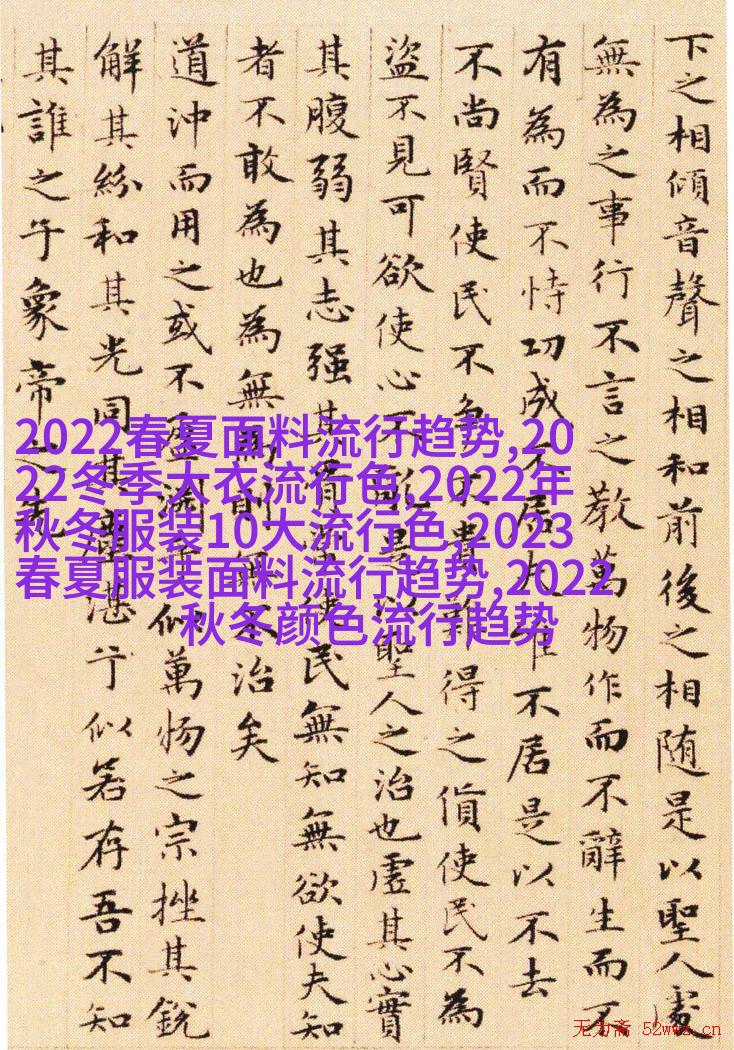 下之相傾音聲之相和前後之相随是以聖人處
無為之事行不言之教萬物作而不辭生而不
有為而不恃功成不居夫唯不居是以不去
不尚賢使民不争不貴難得之貨使民不為
盜不見可欲使心不亂是以聖人之治也虛其心實
其腹弱其志强其骨使民無知無欲使夫知
者不敢為也為無為則無不治矣
道沖而用之或不盈淵似萬物之宗挫其銳
解其紛和其光同其塵湛兮似若存吾不知
其誰之子象帝之先
2022春夏面料流行趋势,20
22冬季大衣流行色,2022年
秋冬服装10大流行色,2023
春夏服装面料流行趋势,2022
秋冬颜色流行趋势
无为斋 52wwz.cn